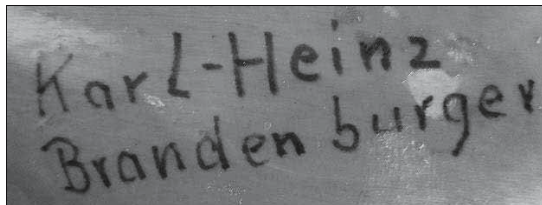 Karl-Heinz
Brandenburger